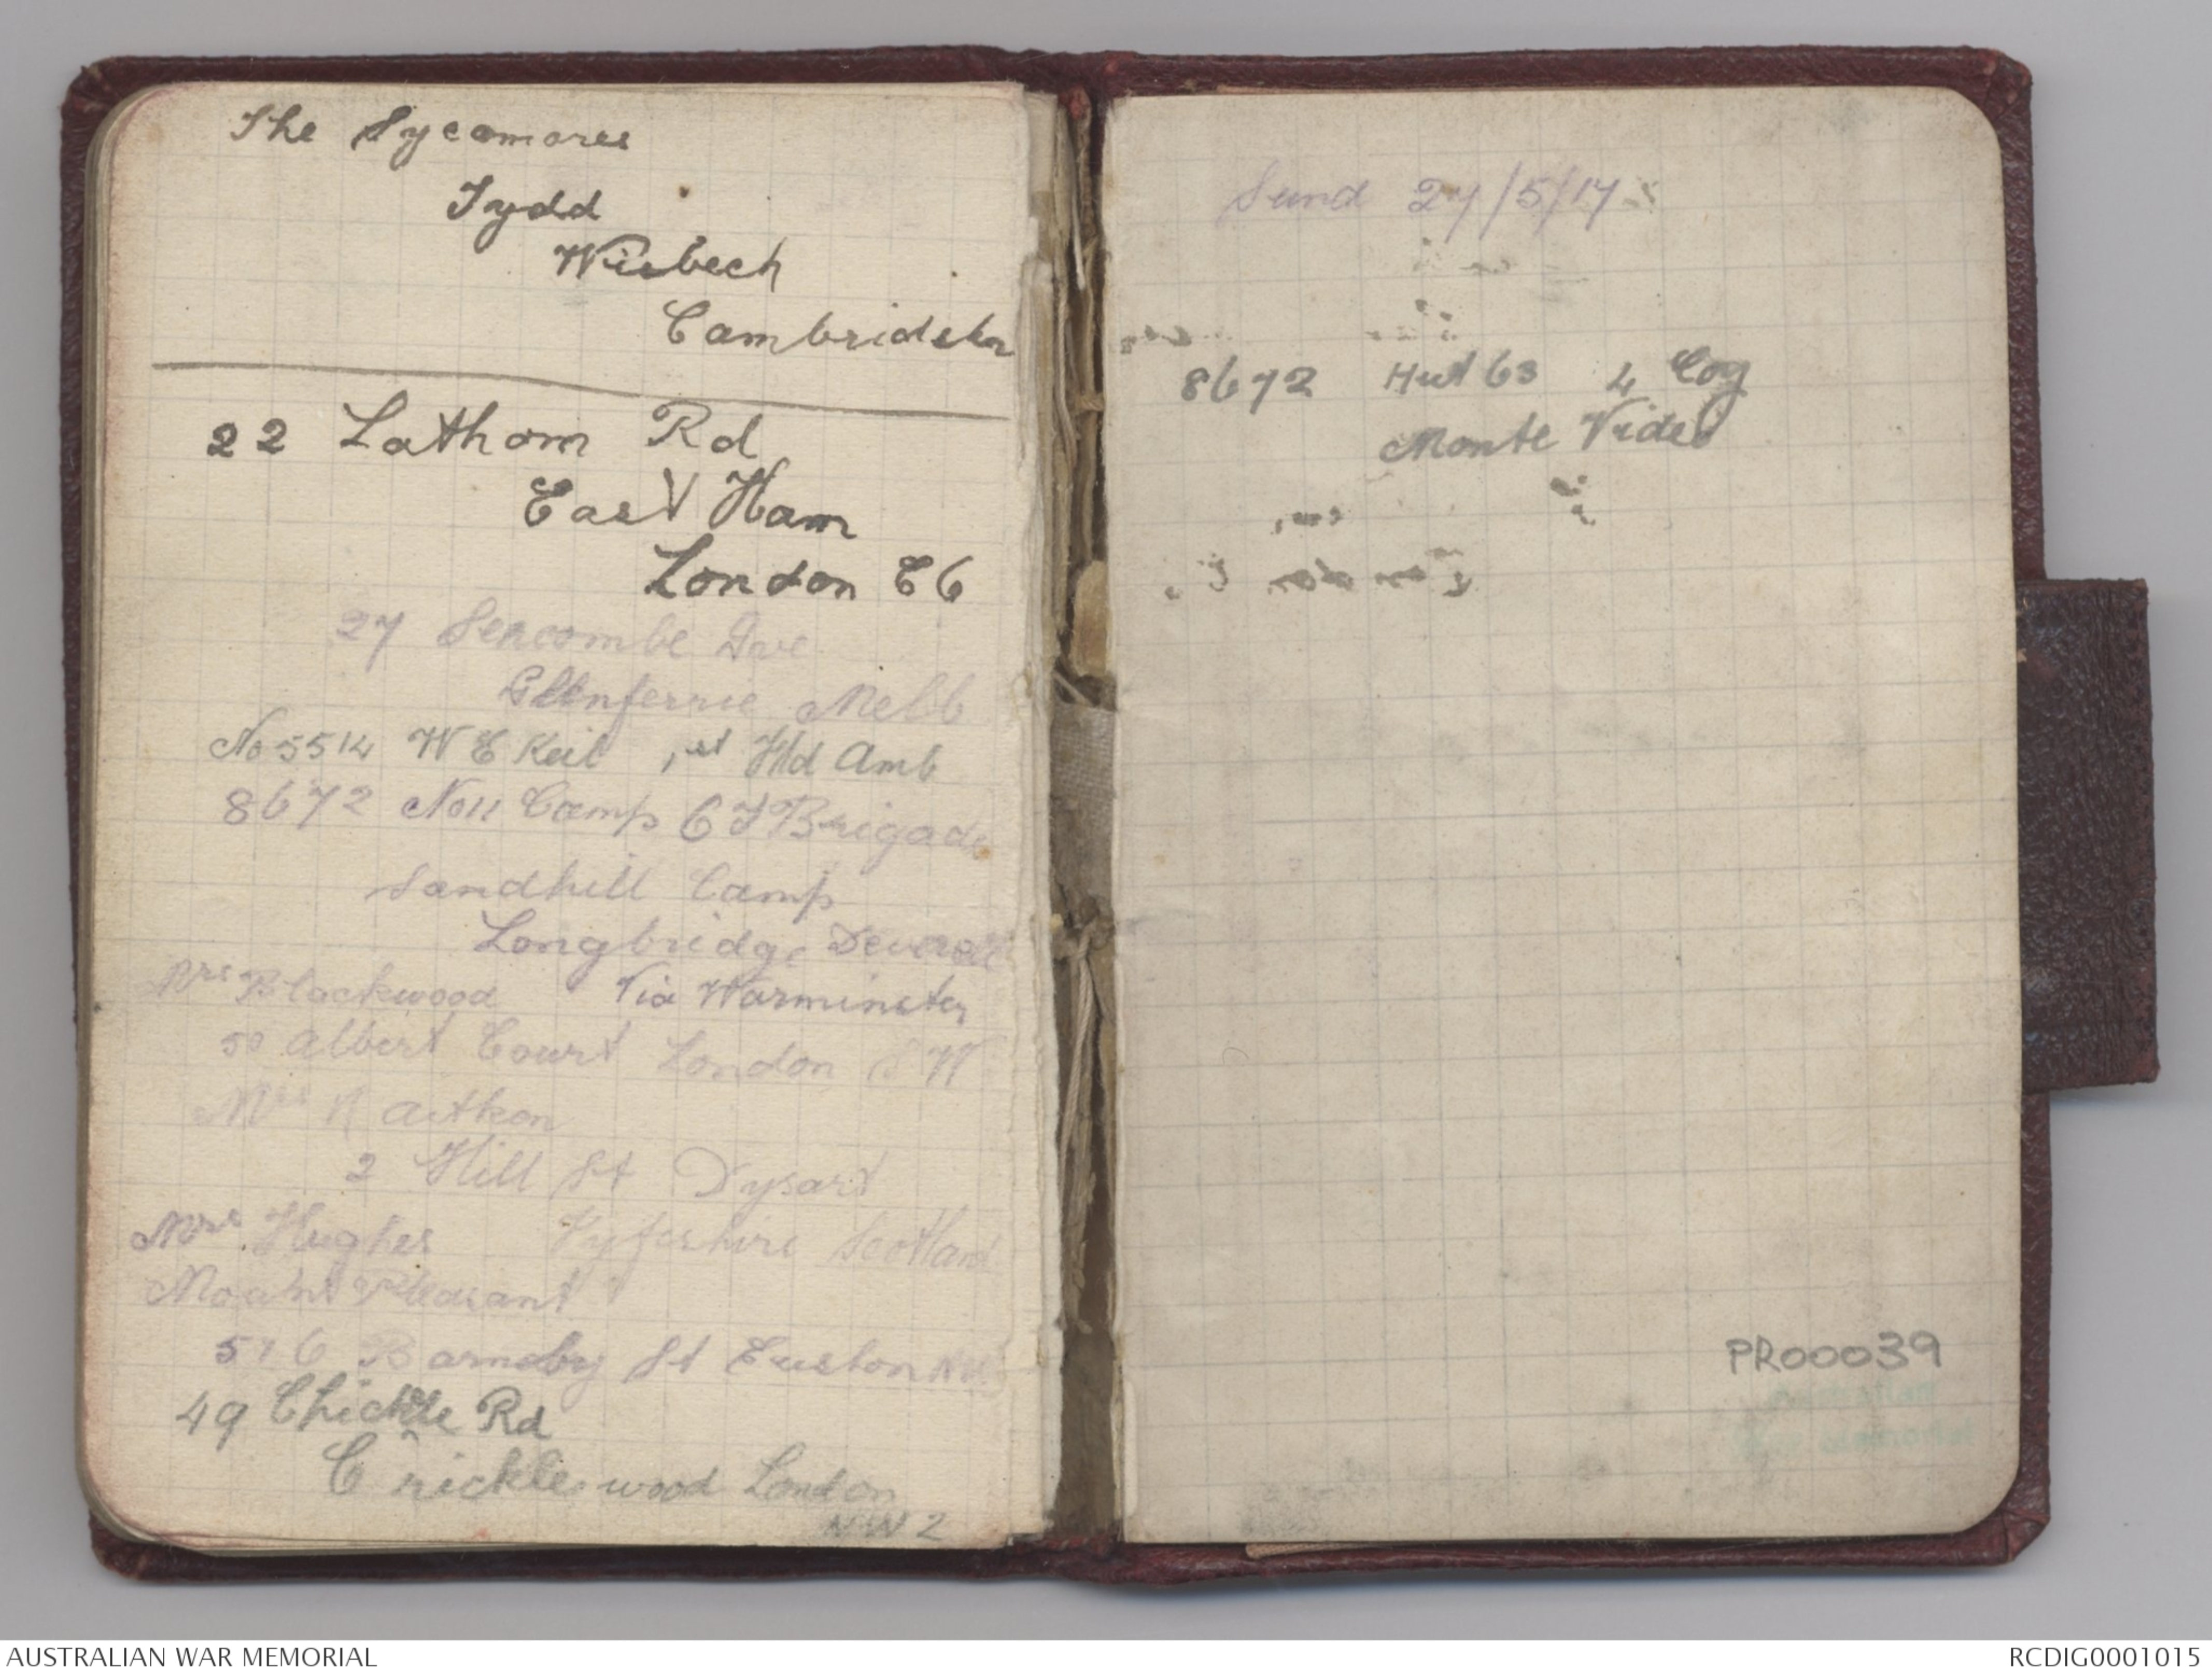 The Sycamores
Tydd
Wisbech
Cambridshr
22 Lathom Rd
East Ham
London E6
27 Sencombe Ave
Glenferrie Melb
No 5514 W E Keil 1st Fld Amb
8672 No 11 Camp 6 T Brigade
Sandhill Camp
Longbridge Deverell
Mrs Blackwood Via Warminster
50 Albert Court London S W
Mrs N Aitken
2 Hill St Dysart
Mrs Hughes Fyfeshire Scotland
Mount Pleasant
Barnaby St Euston NW
49 Chichele Rd
Cricklewood London
NW 2
Sund 27/5/17
8672 Hut 63 4 Coy
Monte Video
PR00039
Australian
War Memorial
AUSTRALIAN WAR MEMORIAL
RCDIG0001015